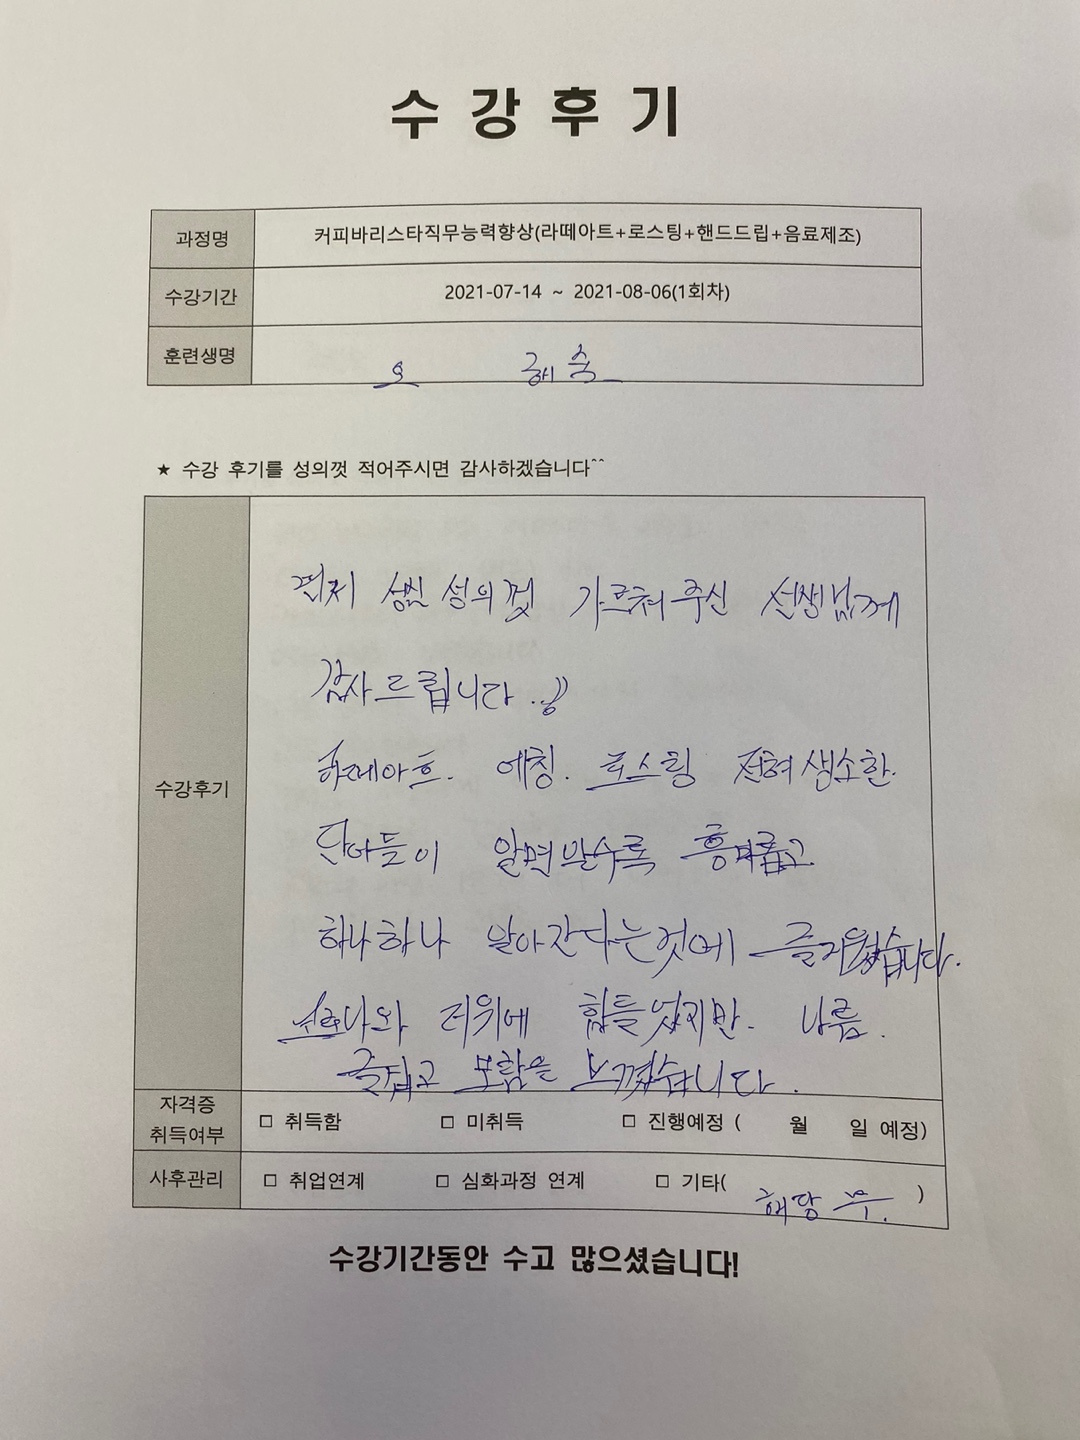 수강후기
과정명 커피바리스타직무능력향상(라떼아트+로스팅+핸드드립+음료제조)
수강기간 2021-07-14 ~ 2021-08-06(1회차)
훈련생명 오 혜숙
★ 수강 후기를 성의껏 적어주시면 감사하겠습니다^^
먼저 성의껏 가르쳐주신 선생님께
감사드립니다..
라떼아트. 에칭. 로스팅 전혀 생소한.
단어들이 알면 알수록 흥미롭고
수강후기
하나하나 알아간다는것에 즐거웠습니다.
코로나와 더위에 힘들었지만. 나름.
즐겁고 보람을 느꼈습니다.
자격증 취득여부 □ 취득함 □ 미취득 □ 진행예정 ( 월 일 예정)
사후관리 □ 취업연계 □ 심화과정 연계 □ 기타( 해당 무. )
수강기간동안 수고 많으셨습니다!